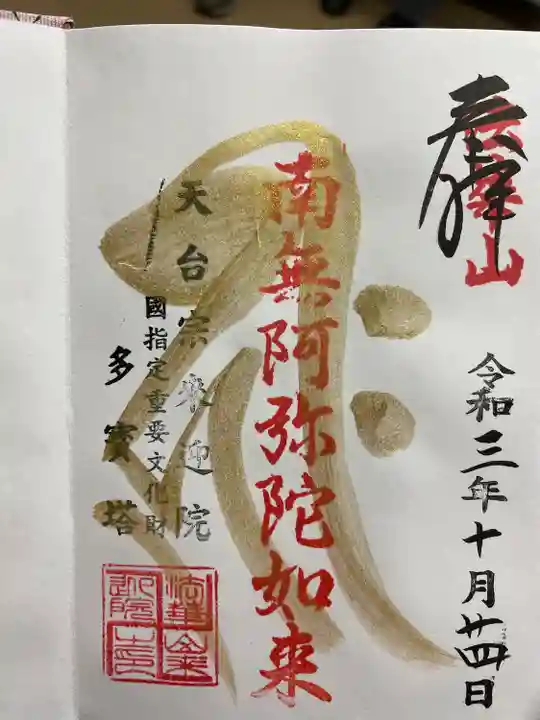 奉拝
法華山
令和三年十月廿四日
南無阿弥陀如来
天台宗來迎院
國指定重要文化財
多寳塔